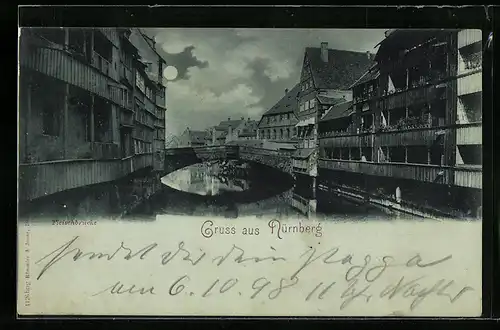 Fleischbrücke
Gruss aus Nürnberg
sendet Dir dein
am 6.10.98 11 Uhr Nachts